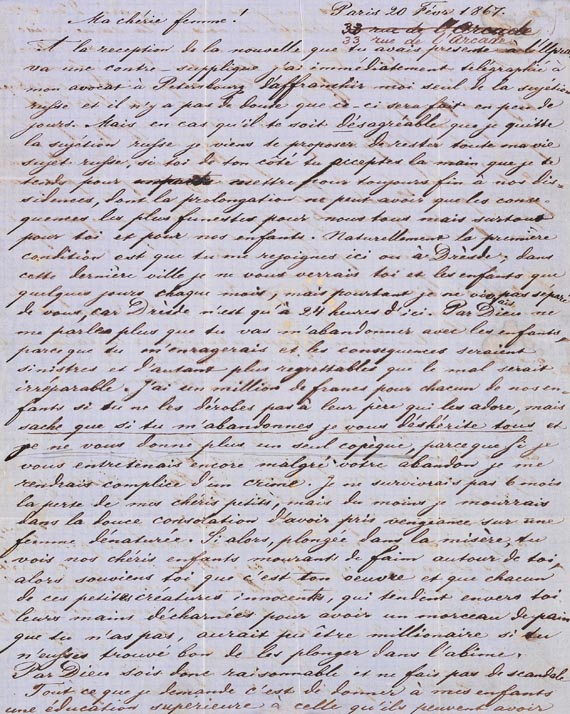 Paris 20 Févr 1867.
Ma chérie femme! 33 rue de l'Arcade
33 rue de l'Arcade
A la reception de la nouvelle que tu avais présenté à l'Uprava
va une contre-supplique j'ai immédiatement télégraphié à
mon avocat à Petersbourg d'affranchir moi seul de la sujetion
russe et il n'y a pas de doute que ce-ci sera fait en peu de
jours. Mais en cas qu'il te soit désagréable que je quitte
la sujetion russe je viens te proposer de rester toute ma vie
sujet russe, si toi de ton côté tu acceptes la main que je te
tends pour mettre pour toujours fin à nos dis-
sidences, dont la prolongation ne peut avoir que les consé-
quences les plus funestes pour nous tous mais surtout
pour toi et pour nos enfants. Naturellement la première
condition est que tu me rejoignes ici ou à Dresde; dans
cette dernière ville je ne vous verrais toi et les enfants que
quelques jours chaque mois, mais pourtant je ne vivrais pas séparé
de vous, car Dresde n'est qu'à 24 heures d'ici. Par Dieu ne
me parle plus que tu vas m'abandonner avec les enfants,
parceque tu m'enragerais et les consequences seraient
sinistres et d'autant plus regrettables que le mal serait
irréparable. J'ai un million de francs pour chacun de nos en-
fants si tu ne les dérobes pas à leur père qui les adore, mais
sache que si tu m'abandonnes je vous déshérite tous et
je ne vous donne plus un seul copéque, parceque si je
vous entretenais encore malgré votre abandon je me
rendrais complice d'un crime. Je ne survivrais pas 6 mois
la perte de mes chéris petits, mais du moins je mourrais
dans la douce consolation d'avoir pris vengeance sur une
femme dénaturée. Si alors, plongée dans la misère, tu
vois nos chéris enfants mourant de faim autour de toi,
alors souviens toi que c'est ton oeuvre et que chacun
de ces petites créatures innocents, qui tendent envers toi
leurs mains décharnées pour avoir un morceau de pain
que tu n'as pas, aurait pu être millionaire si tu
n'eusses trouvé bon de les plonger dans l'abîme.
Par Dieu sois donc raisonnable et ne fais pas de scandale
Tout ce que je demande c'est de donner à mes enfants
une éducation superieure à celle qu'ils peuvent avoir